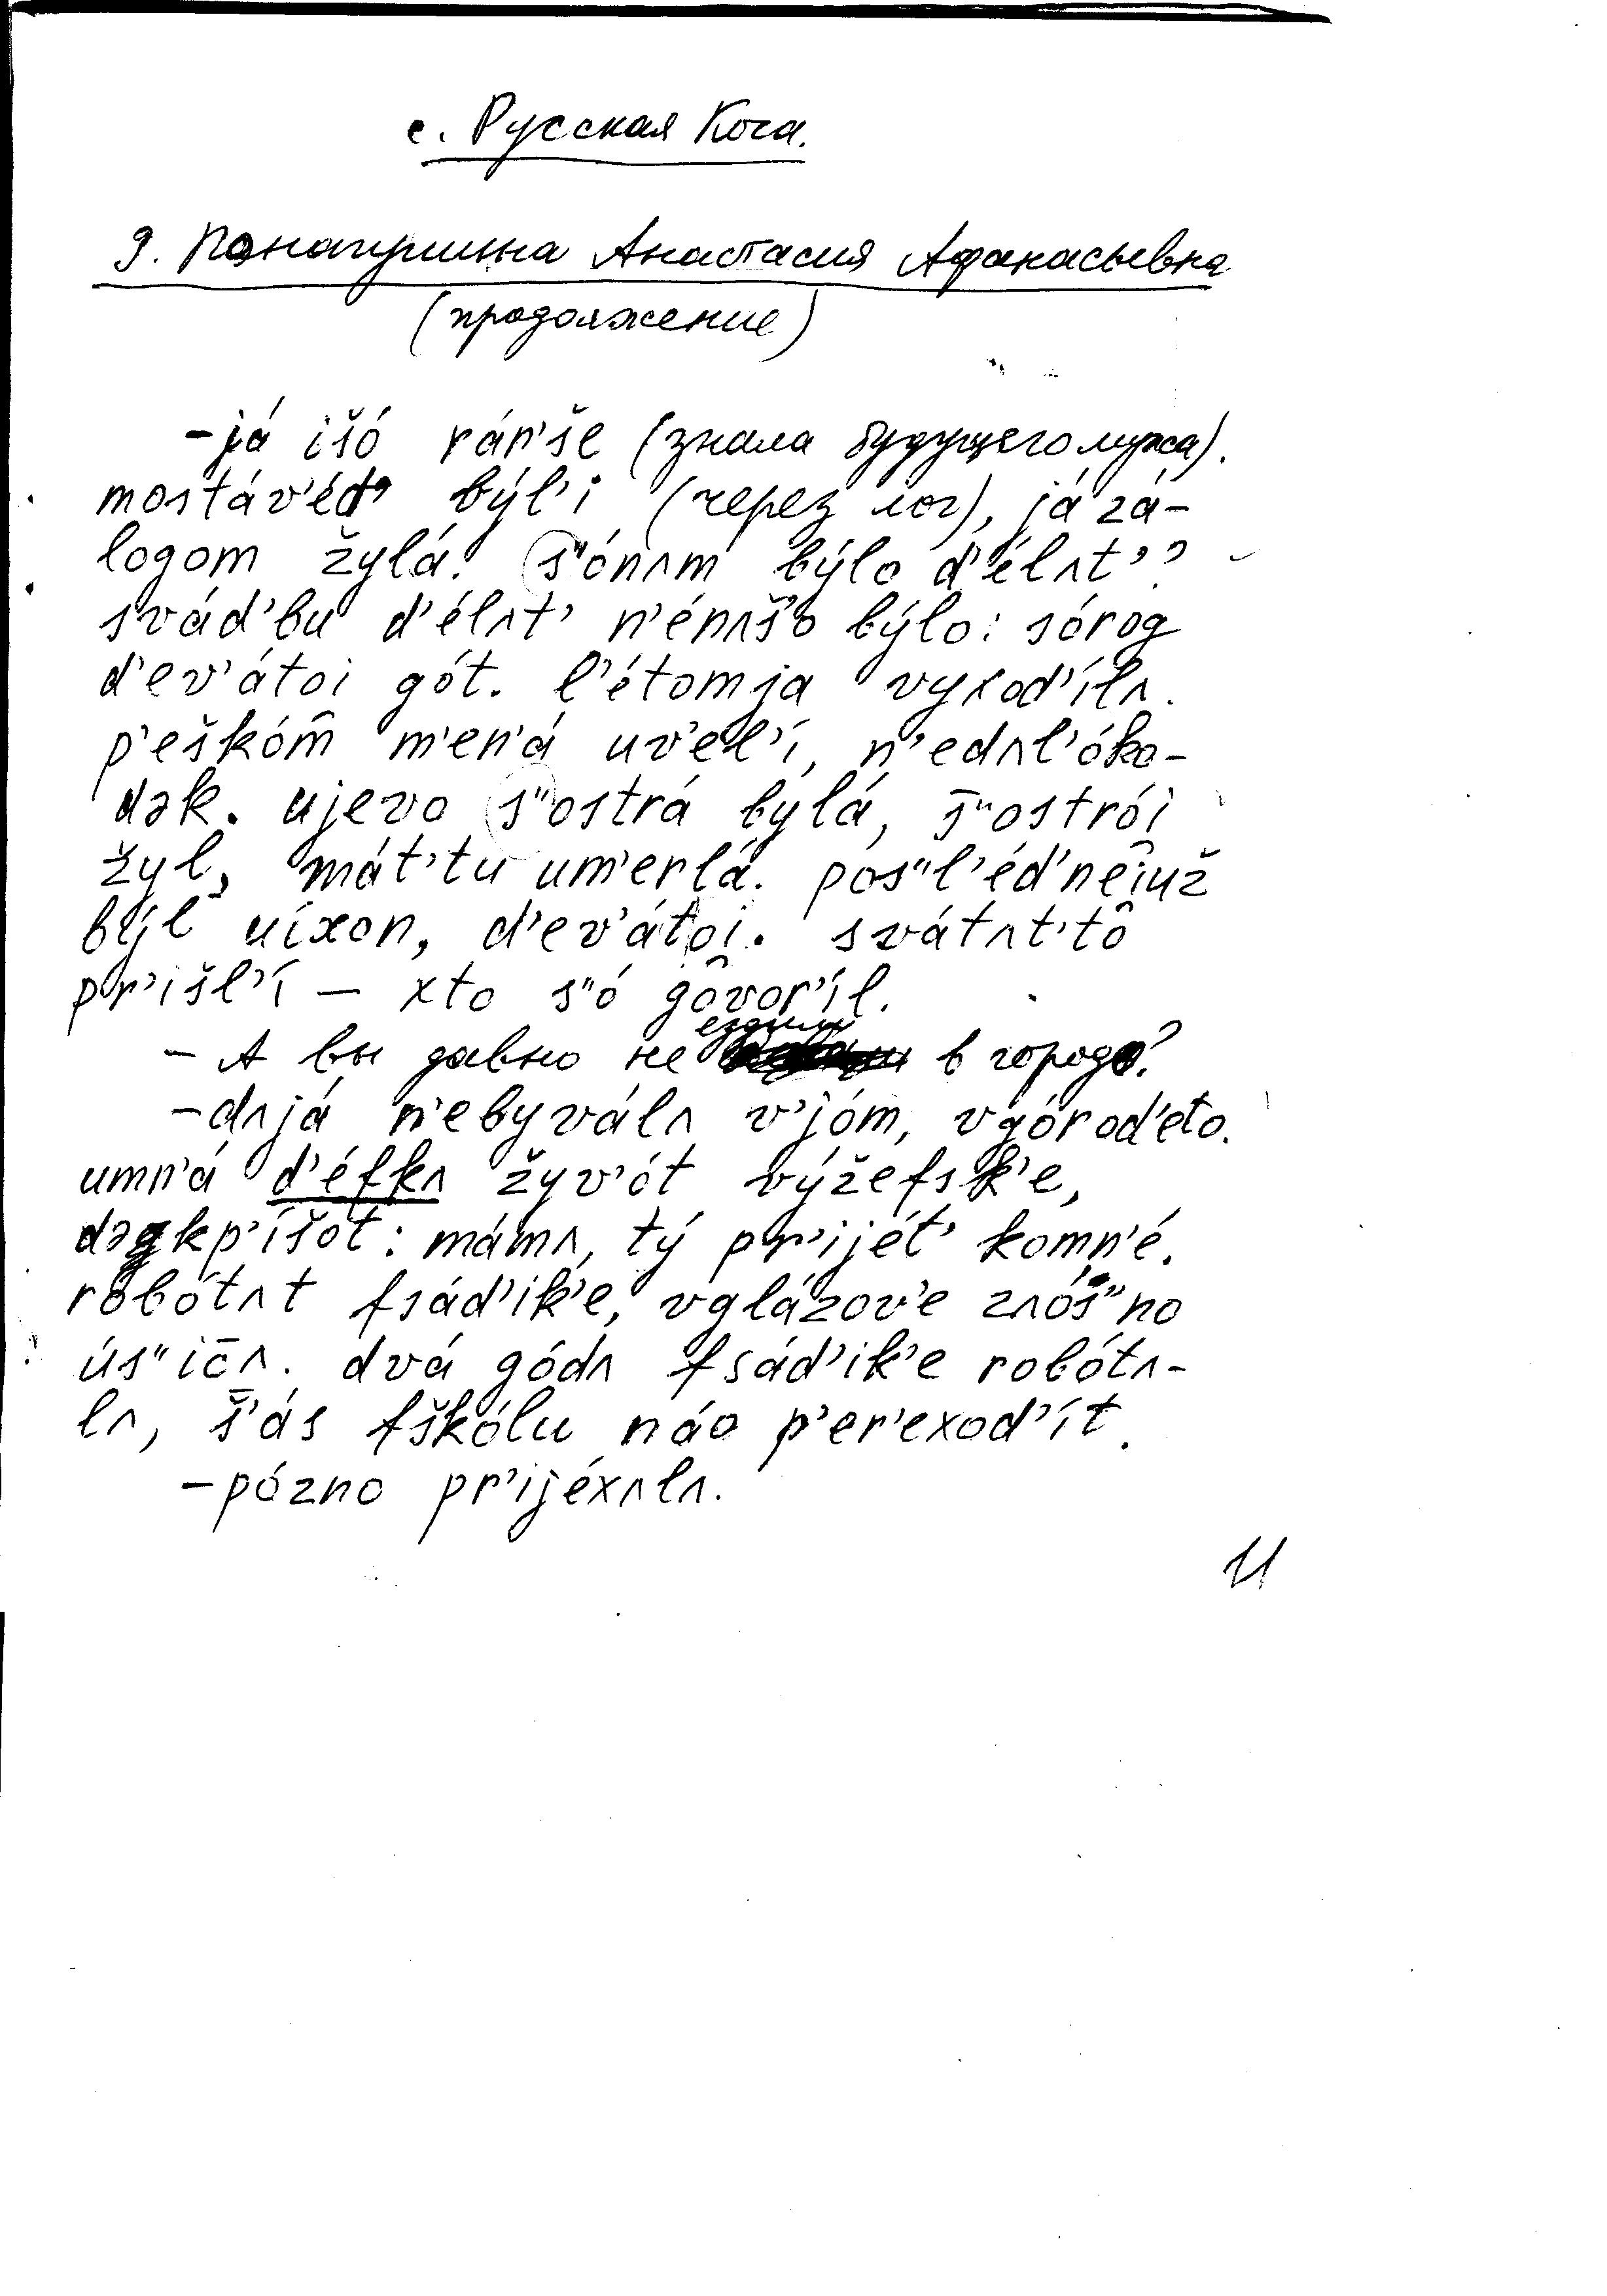 с. Русская Коса.
9. Панагушина Анастасия Афанасьевна
(продолжение)
– já išó rán'še (знала будущего мужа).
mostáv'édʌ být'i (через лог), já zá-
logom žylá. s"ónʌm býlo d'élʌt'?
svád'bu d'élʌt' n'énʌšo býlo: sórog
d'ev'átoi gót. l'étomja vyxod'ílʌ.
p'eškóm m'en'á uv'el'í, n'edʌl'óko-
dək. ujevo s"ostrá bylá, s̄"ostrói
žyl, mát'tu um'erlá. pos"l'éd'nêiuž
býl uíxon, d'ev'átoi. svátʌt'tô
pr'išl'í – xto s"ó gôvor'íl.
– А вы давно не ездили в городе?
– dʌjá n'ebyválʌ v'jóm, vgórod'eto.
umn'á d'éfkʌ žyv'ót výžefsk'e,
dəgkp'íšot: mámʌ, tý pr'ijét' komn'é.
robótʌt fsád'ik'e, vglázov'e zʌós"no
ús"ic̄ʌ. dvá gódʌ fsád'ik'e robótʌ-
lʌ, š̄'ás fškólu náo p'er'exod'ít.
– pózno pr'ijéxʌlʌ.
11